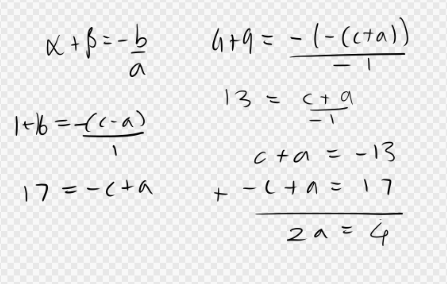 α + β = -b/a
1+16 = -(c-a)/1
17 = -c+a
4+9 = -(-(c+a))/-1
13 = c+a/-1
c+a = -13
+ -c+a = 17
2a = 4